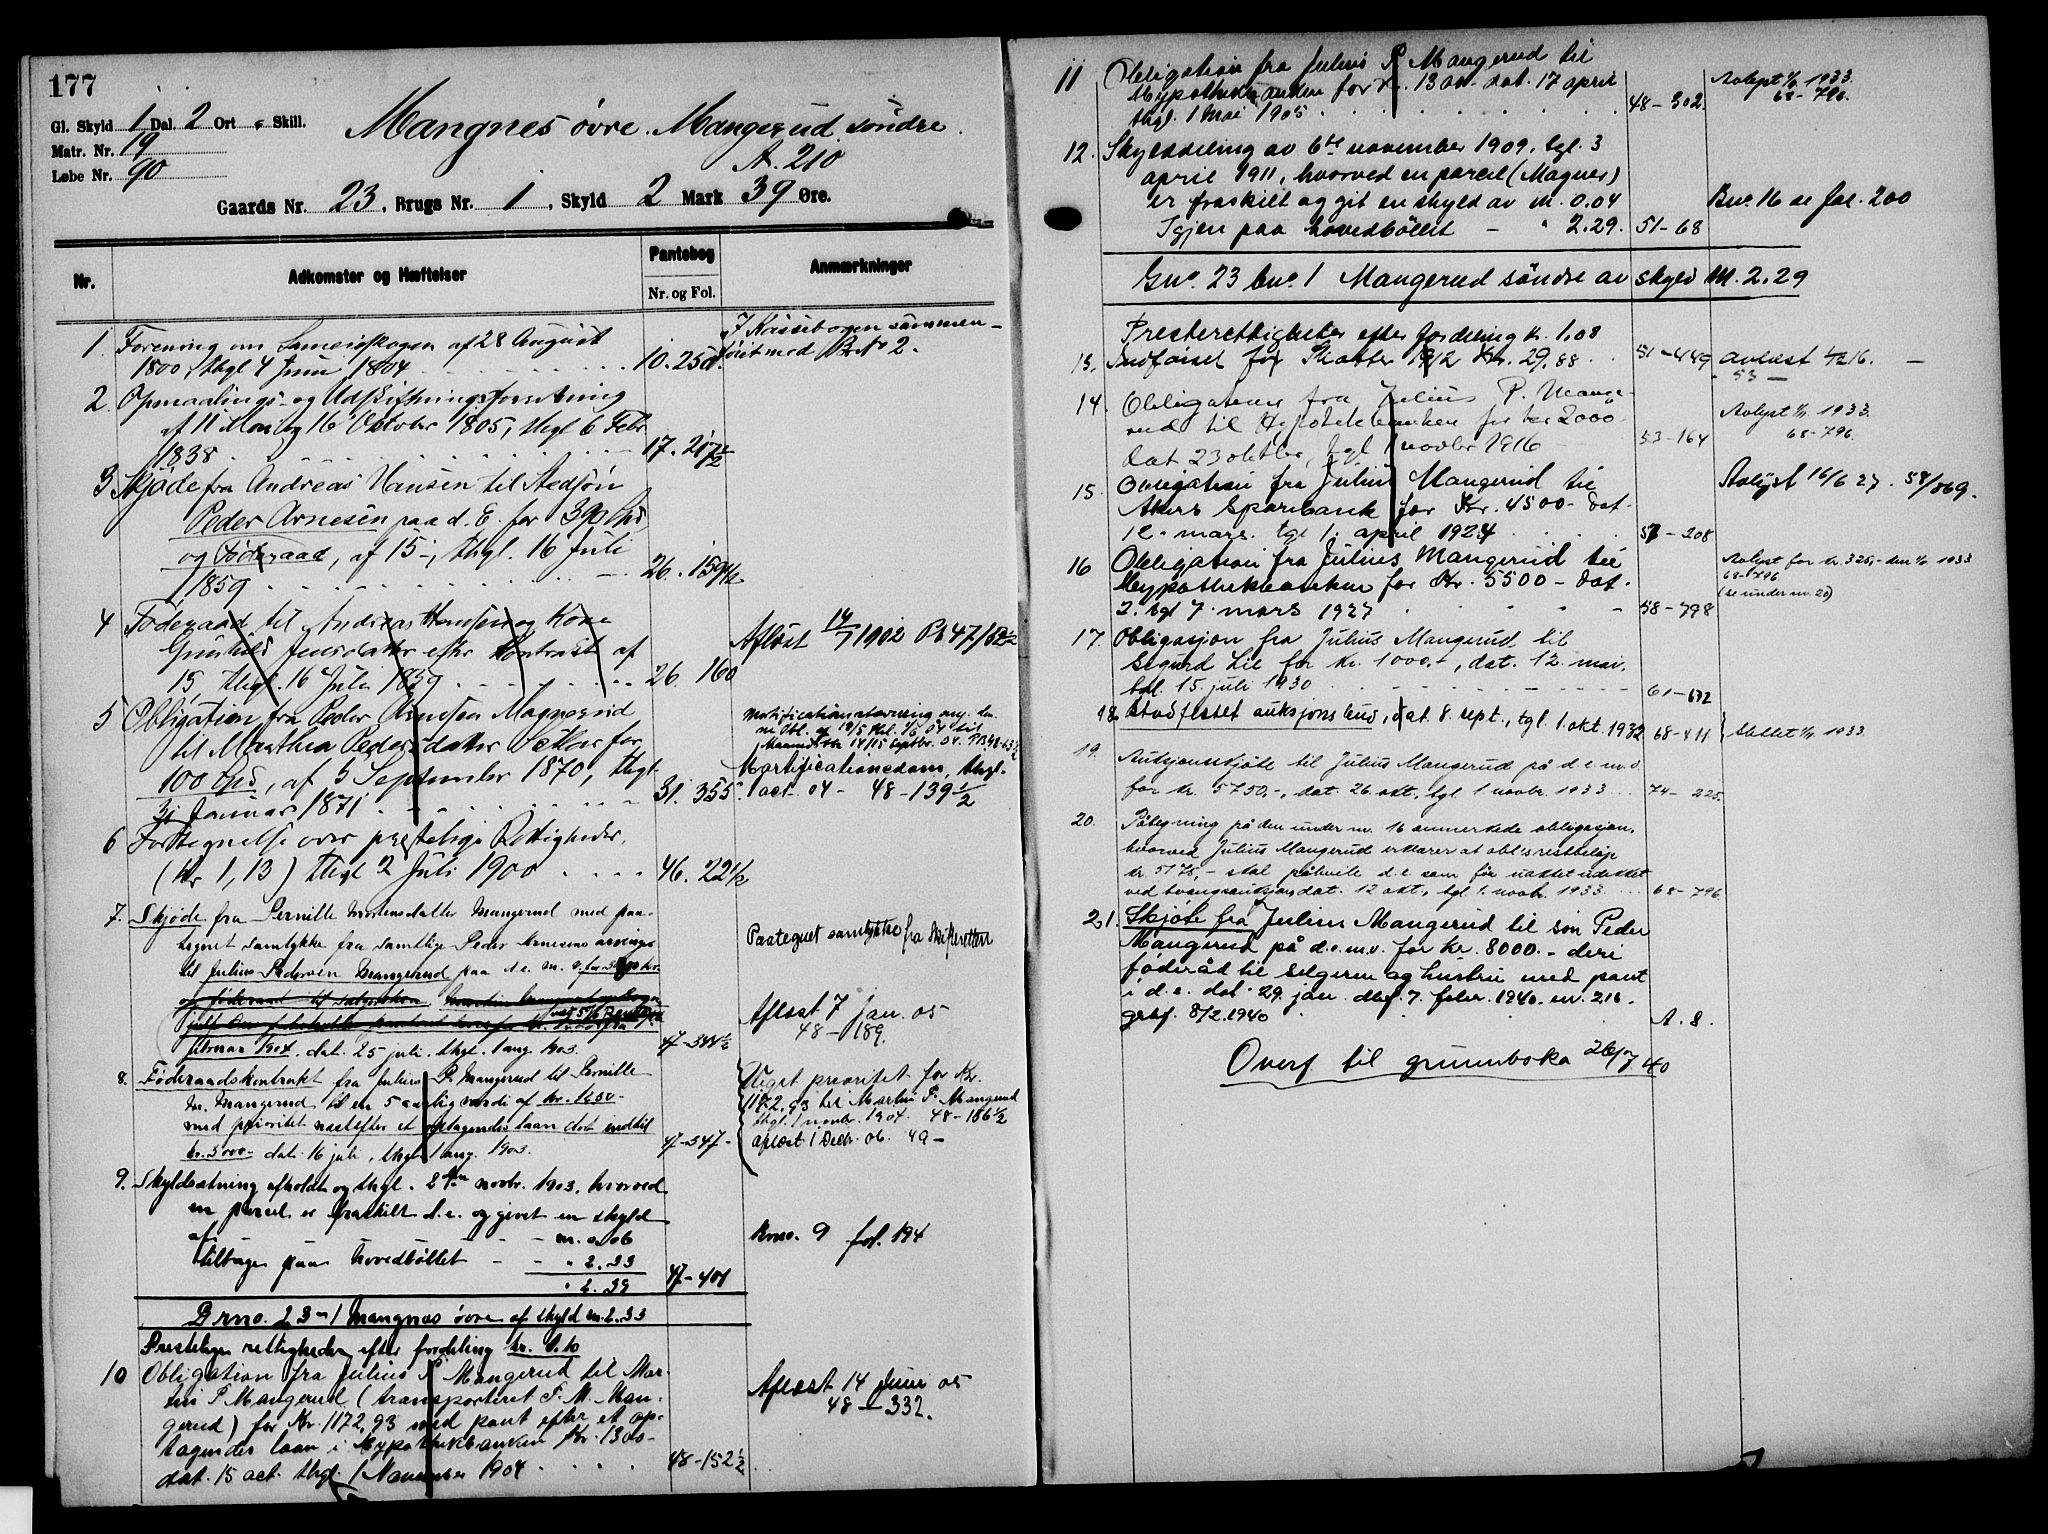 177
Gl. Skyld 1 Dal. 2 Ort " Skill.
Matr. Nr. 19
Løbe Nr. 90
Mangnes øvre. Mangerud søndre.
A. 210
Gaards Nr. 23, Brugs Nr. 1, Skyld 2 Mark 39 Øre.
Nr.
Adkomster og Hæftelser
Pantebog
Nr. og Fol.
Anmærkninger
1. Forening om Sameieskogen af 28 August
1800, thgl 4 Juni 1804 10. 250.
sammen-
føiet med Br. No 2.
2. Opmaalings- og Udskiftningsforretning
af 11 Mai og 16 Oktober 1805, thgl 6 Febr.
1838 17. 217 1/2
3 Skjøde fra Andreas Hansen til Stedsøn
Peder Arnesen paa d. E. for 390 Spd
og Føderaad, af 15-, thgl. 16 Juli
1859 26. 159 1/2
4 Føderaad til Andreas Hansen og Kone
Gunhild Jensdatter efter Kontrakt af
15, thgl. 16 Juli 1859 26. 160
Afløst 14/7 1902 Pb 47/52 1/2
5 Obligation fra Peder Arnesen Magnerud
til Marthea Pedersdatter for
100 Spd, af 5 September 1870, thgl
31 Januar 1871 31. 355.
Mortificationsdom, thgl.
1 oct. 04 - 48-139 1/2
6 Fortegnelse over præstelige Rettigheder,
(Kr 1,13) thgl 2 Juli 1900 46. 22 1/2
7. Skjøde fra Pernille Mortensdatter Mangerud med paa-
tegnet samtykke fra samtlige Peder Arnesens arvinger
til Julius Pedersen Mangerud paa d.e. m.v. for
februar 1904. dat. 25 juli, thgl. 1 aug. 1903.
Paategnet samtykke fra Skifteretten
Afløst 7 Jan. 05
48-189.
8. Føderaadskontrakt fra Julius P. Mangerud til Pernille
M. Mangerud til en 5 aarlig værdi af kr.
med prioritet næstefter et optagendes laan indtil
kr. 5000- dat. 16 juli, thgl. 1 aug. 1903. 47-347-
Veget prioritet for Kr.
1172.93 til Martin P. Mangerud
thgl. 1 novbr. 1904. 48-186 1/2
afløst 1 Decbr. 06. 49-
9. Skyldsætning afholdt og thgl. novbr. 1903, hvorved
en parcel er fraskilt d.e. og givet en skyld
af - - - m. 0.06
Tilbage paa hovedbøllet - - " 2.33
" 2.39 47-401
Brno. 9 fol. 194
Brno. 23-1 Mangnæs øvre af skyld m. 2.33
Præstelige rettigheder efter fordeling kr. 1.10
10 Obligation fra Julius P. Mangerud til Mar-
tin P. Mangerud (transporteret P. M. Man-
gerud) for Kr. 1172,93 med pant efter et op-
tagendes laan i Hypothekbanken Kr. 1300-
dat. 15 oct. thgl. 1 November 1904 48-152 1/2.
Afløst 14 Juni 05
48-332.
11 Obligation fra Julius P. Mangerud til
Hypothekbanken for Kr. 1300- dat. 17 april
thgl. 1 Mai 1905 48-302.
Avlyst 1933.
68-796.
12. Skylddeling av 6te november 1909, tgl. 3
april 1911, hvorved en parcel (Magner)
er fraskilt og git en skyld av m. 0.04
Igjen paa hovedbøllet - " 2.29. 51-68
Bno. 16 se fol. 200
Gno. 23 bno. 1 Mangerud søndre av skyld M. 2.29
Presterettigheter efter fordeling kr. 1.08
13. Indførsel for Skatter 1912 Kr. 29.88 51-449
avlæst
53-
14. Obligation fra Julius P. Mange-
rud til Hypotekbanken for kr 2000
dat. 23 oktbr, tgl. 1 novbr 1916 53-164
Avlyst 1933.
68-796.
15. Obligation fra Julius Mangerud til
Akers Sparebank for Kr. 4500- dat.
12. mars. tgl 1. april 1924 57-208
Avlyst 16/6 27. 58/869.
16 Obligation fra Julius Mangerud til
Hypothekbanken for Kr. 5500- dat.
2. tgl 7. mars 1927 58-798
Avlyst for kr. 325,- den 1933
68-796
(se under nr. 20)
17. Obligasjon fra Julius Mangerud til
Sigurd Lie for kr. 1000,-, dat. 12. mai,
tgl. 15. juli 1930 61-672
18. Stadfestet auksjonsbud, dat. 8. sept., tgl. 1. okt. 1932 68-411
Slettet 1933.
19. Auksjonsskjøte til Julius Mangerud på d.e.m.v.
for kr. 5750,-, dat. 26. okt., tgl. 1 novbr. 1933 74-225.
20. Påtegning på den under nr. 16 anmerkede obligasjon,
hvorved Julius Mangerud erklærer at obl.s restbeløp
kr. 5175,- skal påhvile d.e. som før uaktet udekket
ved tvangsauksjon, dat. 12 okt., tgl. 1. novbr. 1933 68-796
21. Skjøte fra Julius Mangerud til søn Peder
Mangerud på d.e.m.v. for kr. 8000.- deri
føderåd til selgeren og hustru med pant
i d.e. dat. 29. jan. dbf. 7. febr. 1940. nr. 216.
grbf. 8/2.1940 A. 8.
Overf til grunnboka 26/7 40